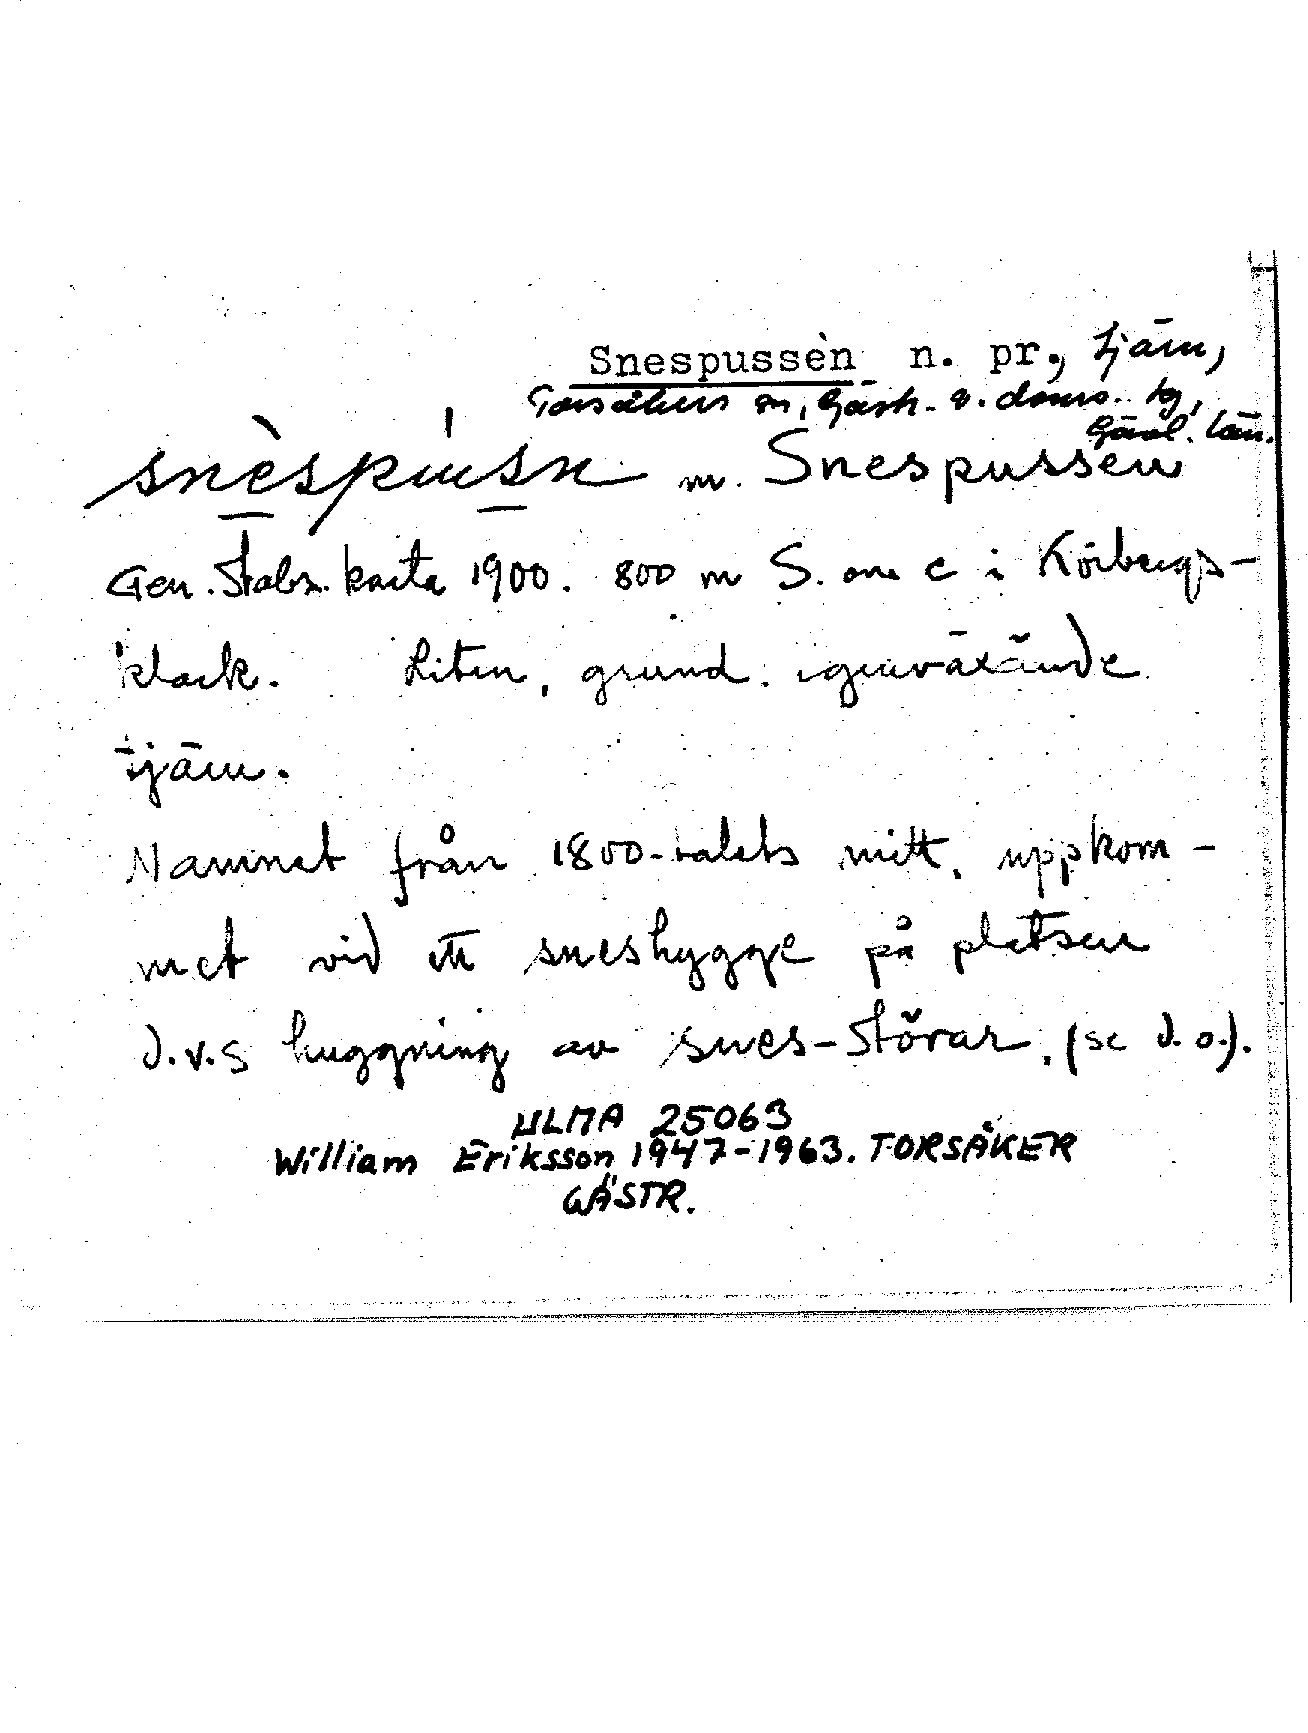 Snespussen n. pr., tjärn,
Torsåkers sn, Gästr. v. doms. tg,
Gävl. län.
m. Snespussen
Gen. Stabs. karta 1900. 800 m S. om c i Körbergs-
klack. Liten, grund. igenväxande
tjärn.
Namnet från 1800-talets mitt. uppkom-
met vid ett sneshygge på platsen
d.v.s huggning av snes-störar. (se d.o.).
ULMA 25063
William Eriksson 1947-1963. TORSÅKER
GÄSTR.